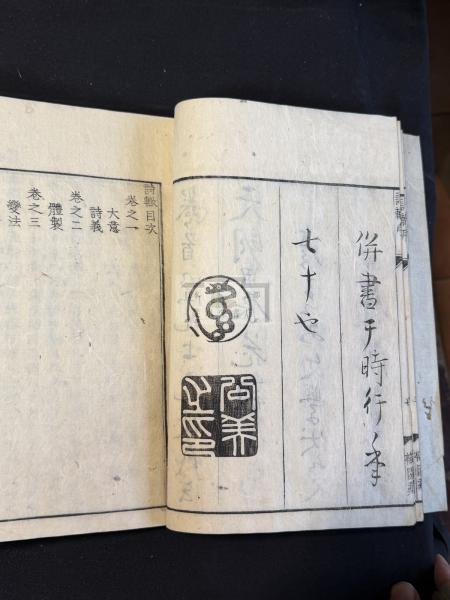 併書于時行年
七十也
詩轍目次
卷之一
大意
詩義
卷之二
體製
卷之三
變法